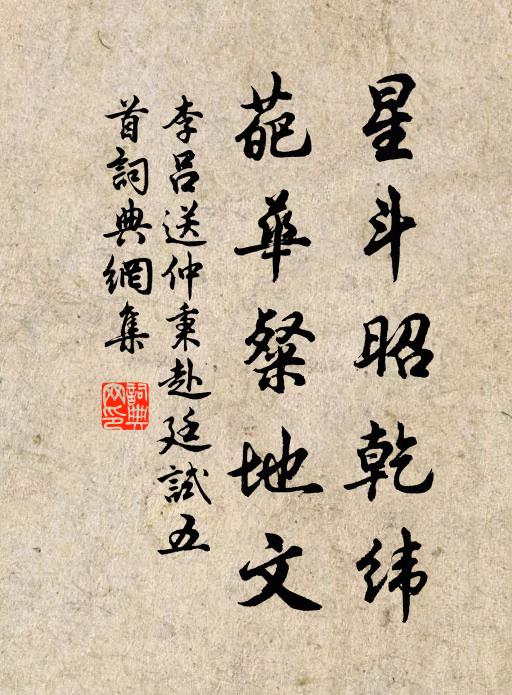 星斗昭乾緯
葩華粲地文
李呂送仲秉赴廷試五
首詞典網集
詞典網印